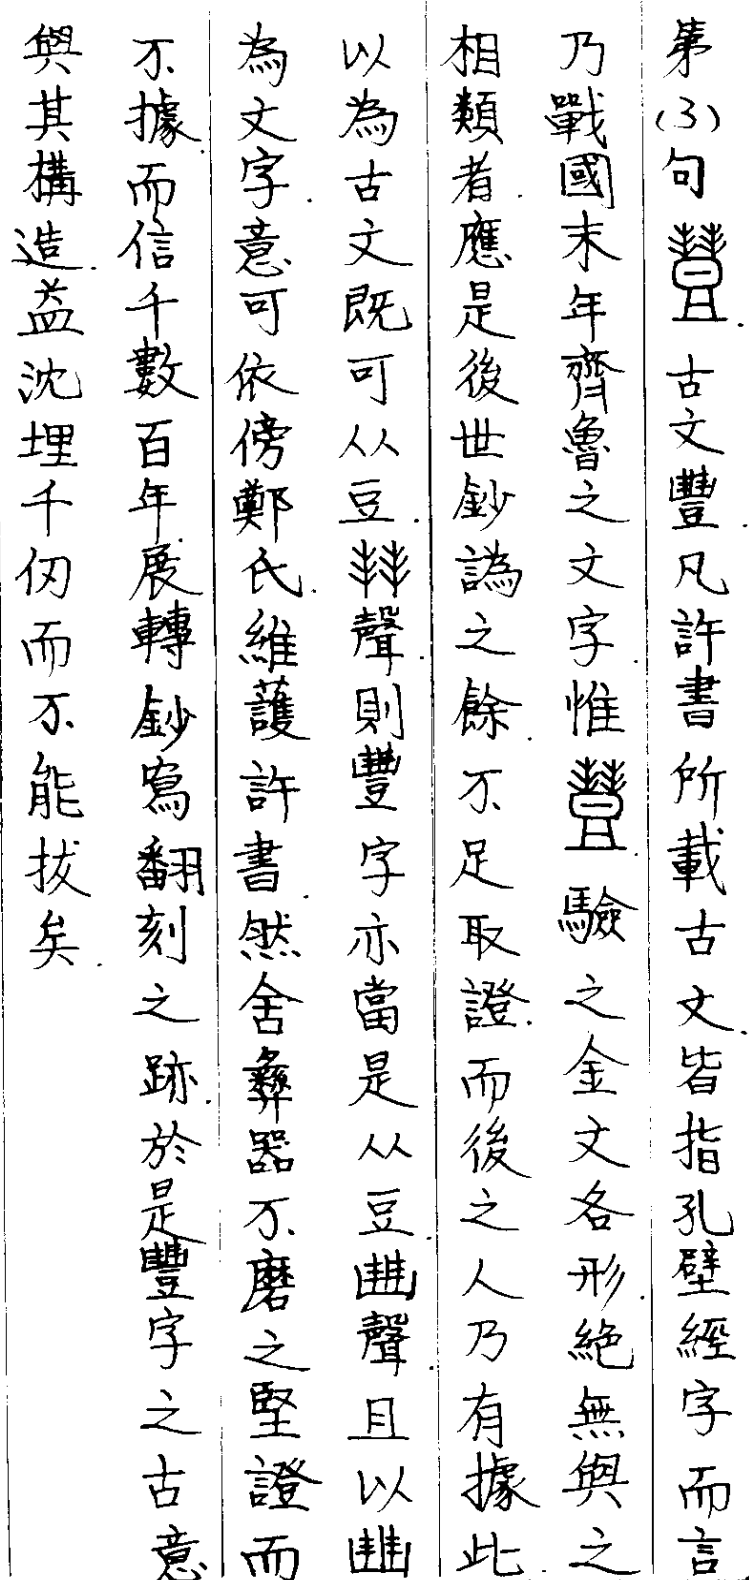 第(3)句.古文豐.凡許書所載古文.皆指孔壁經字而言
乃戰國末年齊魯之文字.惟驗之金文各形.絕無與之
相類者.應是後世鈔譌之餘.不足取證.而後之人乃有據此.
以為古文既可从豆.聲.則豐字亦當是从豆.聲.且以
為文字.意可依傍鄭氏.維護許書.然舍彝器不磨之堅證而
不據.而信千數百年.展轉鈔寫翻刻之跡.於是豐字之古意
與其構造.益沈埋千仞而不能拔矣.